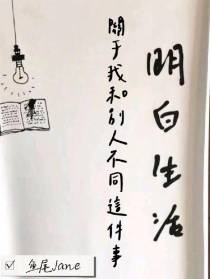 明白生活
關于我和別人不同這件事
魚尾Jane